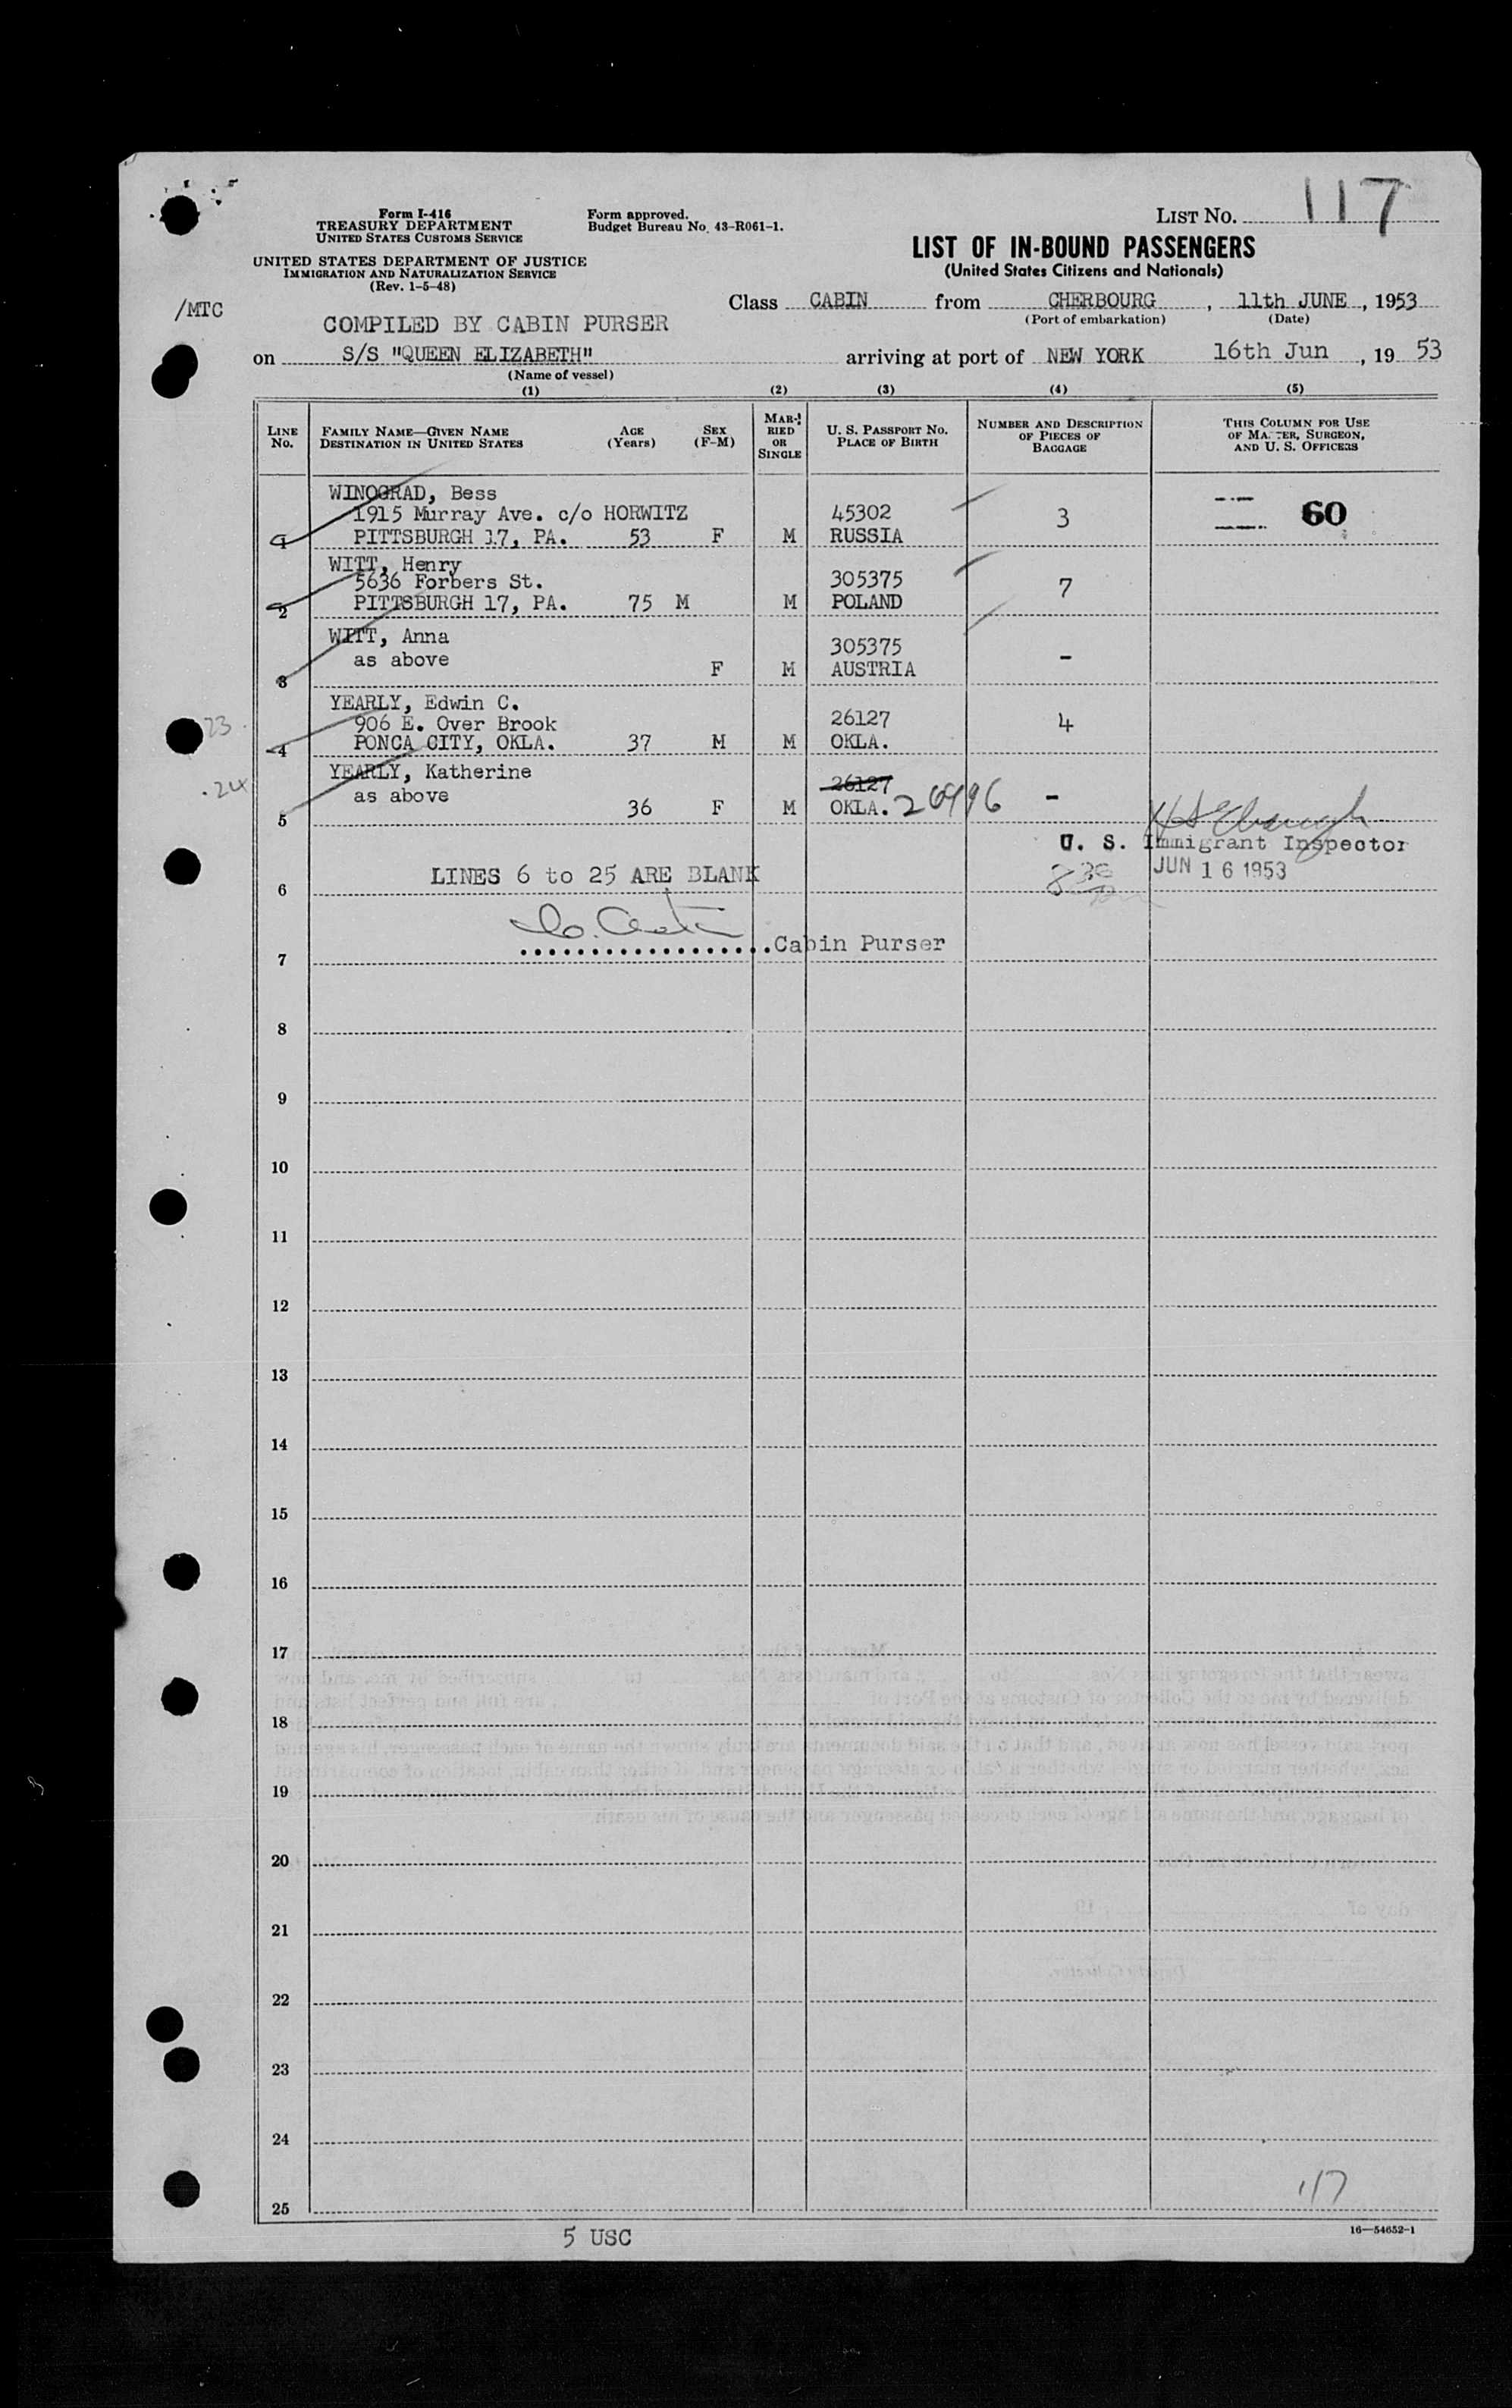 LIST NO. 117
Form I-416
TREASURY DEPARTMENT
UNITED STATES CUSTOMS SERVICE
Form approved.
Budget Bureau No. 43-R061-1.
LIST OF IN-BOUND PASSENGERS
(United States Citizens and Nationals)
UNITED STATES DEPARTMENT OF JUSTICE
IMMIGRATION AND NATURALIZATION SERVICE
(Rev. 1-5-48)
/MTC
Class CABIN from CHERBOURG, 11th JUNE, 1953
(Port of embarkation) (Date)
COMPILED BY CABIN PURSER
on S/S "QUEEN ELIZABETH" arriving at port of NEW YORK 16th Jun, 19 53
(Name of vessel)
(1) (2) (3) (4) (5)
LINE No. FAMILY NAME—GIVEN NAME DESTINATION IN UNITED STATES AGE (Years) SEX (F-M) MARRIED OR SINGLE U. S. PASSPORT NO. PLACE OF BIRTH NUMBER AND DESCRIPTION OF PIECES OF BAGGAGE THIS COLUMN FOR USE OF MASTER, SURGEON, AND U. S. OFFICERS
WINOGRAD, Bess
1915 Murray Ave. c/o HORWITZ 45302 3 60
1 PITTSBURGH 17, PA. 53 F M RUSSIA
WITT, Henry
5636 Forbers St. 305375 7
2 PITTSBURGH 17, PA. 75 M M POLAND
WITT, Anna 305375
as above F M AUSTRIA -
3
YEARLY, Edwin C.
23 906 E. Over Brook 26127 4
4 PONCA CITY, OKLA. 37 M M OKLA.
YEARLY, Katherine
24 as above 26127
5 36 F M OKLA. 26996 -
U. S. Immigrant Inspector
JUN 16 1953
6 LINES 6 to 25 ARE BLANK
7 Cabin Purser
8
9
10
11
12
13
14
15
16
17
18
19
20
21
22
23
24
117
25
5 USC
16—54652-1